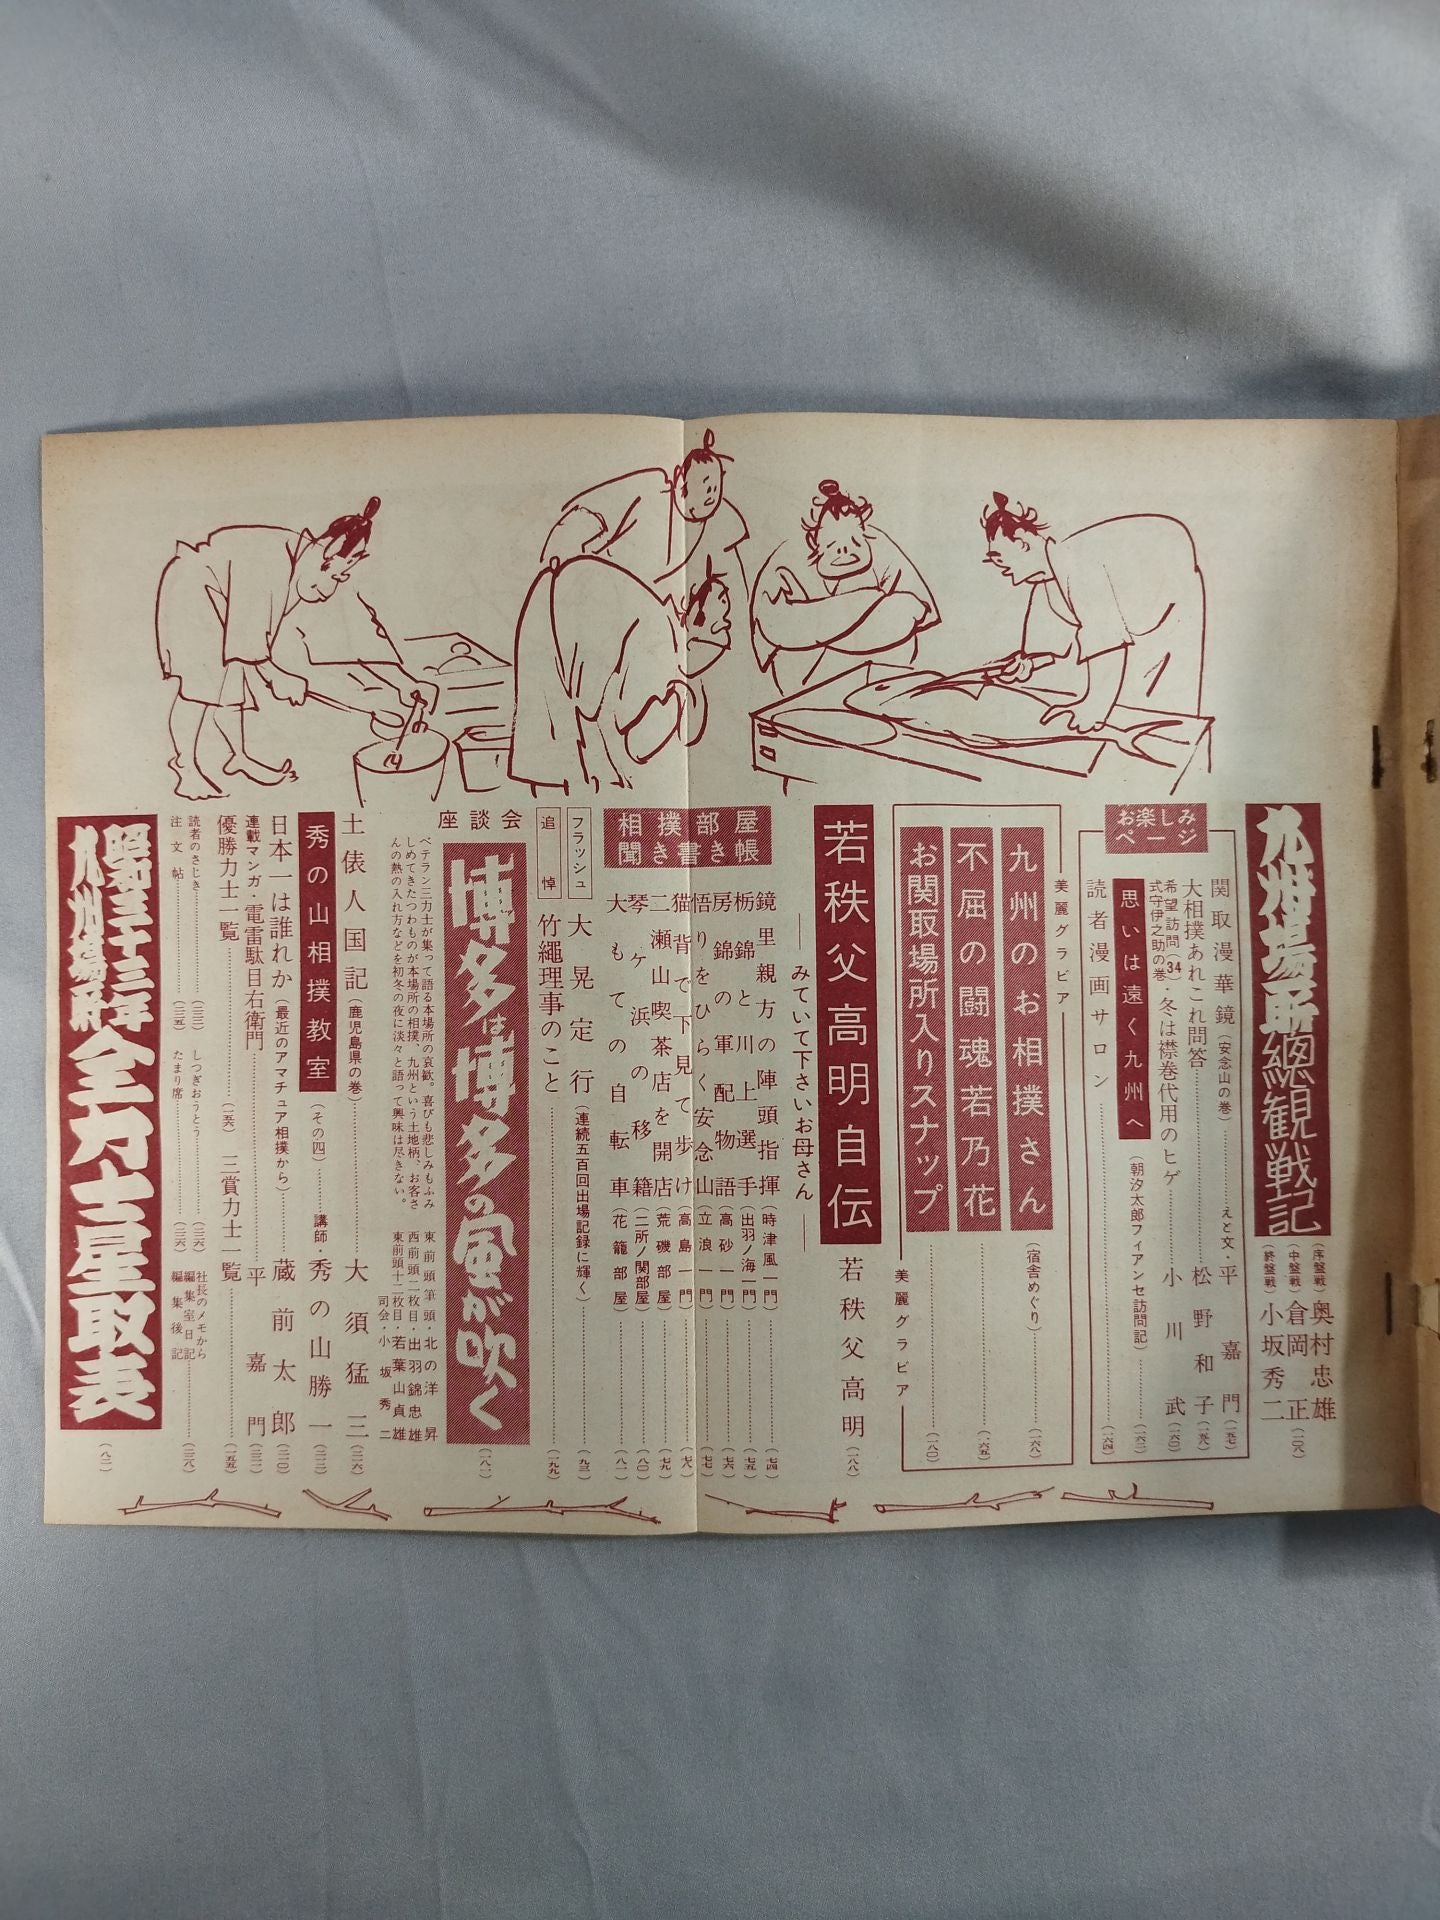 九州場所総観戦記
(序盤戦)奥村忠雄
(中盤戦)倉岡正
(終盤戦)小坂秀二
(一〇八)
お楽しみページ
関取漫華鏡(安念山の巻)……えと文・平嘉門(一五七)
大相撲あれこれ問答……松野和子(一五九)
希望訪問(34)式守伊之助の巻・冬は襟巻代用のヒゲ……小川武(一六〇)
思いは遠く九州へ(朝汐太郎フィアンセ訪問記)……(一六二)
読者漫画サロン……(一六四)
美麗グラビア
九州のお相撲さん(宿舎めぐり)……(一六八)
不屈の闘魂若乃花……(一六五)
お関取場所入りスナップ……(一八〇)
美麗グラビア
若秩父高明自伝 若秩父高明(一八八)
――みていて下さいお母さん――
相撲部屋聞き書き帳
鏡里親方の陣頭指揮(時津風一門)……(七四)
栃錦と川上選手(出羽ノ海一門)……(七五)
房錦の軍配物語(高砂一門)……(七六)
悟りをひらく安念山(立浪一門)……(七七)
猫背で下見て歩け(高島一門)……(七八)
二瀬山喫茶店を開店(荒磯部屋)……(七九)
琴ヶ浜の移籍(二所ノ関部屋)……(八〇)
大もての自転車(花籠部屋)……(八一)
フラッシュ 大晃定行(連続五百回出場記録に輝く)……(九三)
追悼 竹縄理事のこと……(一九九)
座談会
博多は博多の風が吹く
(一八一)
ベテラン三力士が集って語る本場所の哀歓。喜びも悲しみもふみ
しめてきたたつわものが本場所の相撲、九州という土地柄、お客さ
んの熱の入れ方などを初冬の夜に淡々と語って興味は尽きない。
東前頭筆頭・北の洋昇
西前頭二枚目・出羽錦忠雄
東前頭十二枚目・若葉山貞雄
司会・小坂秀二
土俵人国記(鹿児島県の巻)……大須猛三(二一六)
秀の山相撲教室(その四)……講師・秀の山勝一
日本一は誰れか(最近のアマチュア相撲から)……蔵前太郎
連載マンガ・電雷駄目右衛門……平嘉門
優勝力士一覧…… 三賞力士一覧……
読者のさじき…… しつぎおうとう…… 社長のメモから
編集室日記
注文帖…… たまり席…… 編集後記
昭和三十三年九州場所全力士星取表
(八二)